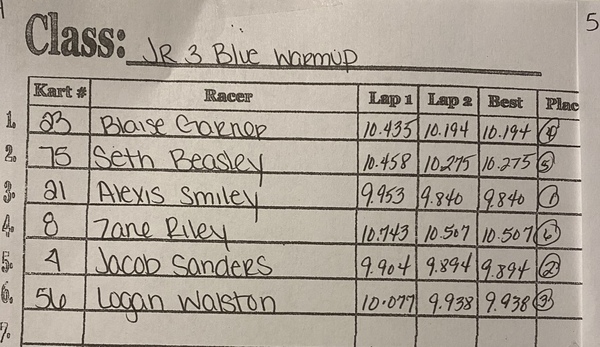 5
Class: JR 3 Blue Warmup
Kart # Racer Lap 1 Lap 2 Best Plac
1. 23 Blaise Garnor 10.435 10.194 10.194 4
2. 75 Seth Beasley 10.458 10.275 10.275 5
3. 21 Alexis Smiley 9.953 9.840 9.840 1
4. 8 Zane Riley 10.743 10.507 10.507 6
5. 4 Jacob Sanders 9.904 9.894 9.894 2
6. 56 Logan Walston 10.077 9.938 9.938 3
7.